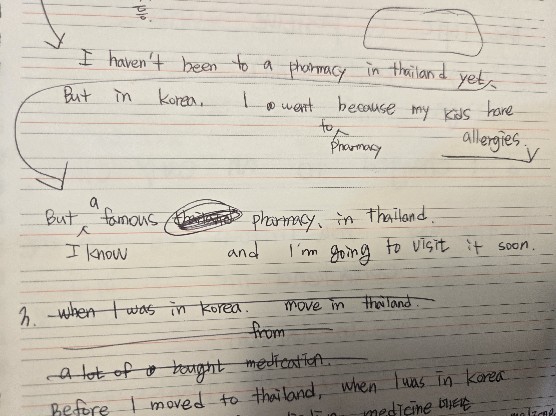 I haven't been to a pharmacy in thailand yet.
But in Korea. I went because my kids have
to pharmacy
allergies.
a
But famous pharmacy, in Thailand.
I know and I'm going to visit it soon.
3. when I was in Korea. move in thailand.
from
a lot of bought medication.
Before I moved to thailand, when I was in Korea
medicine